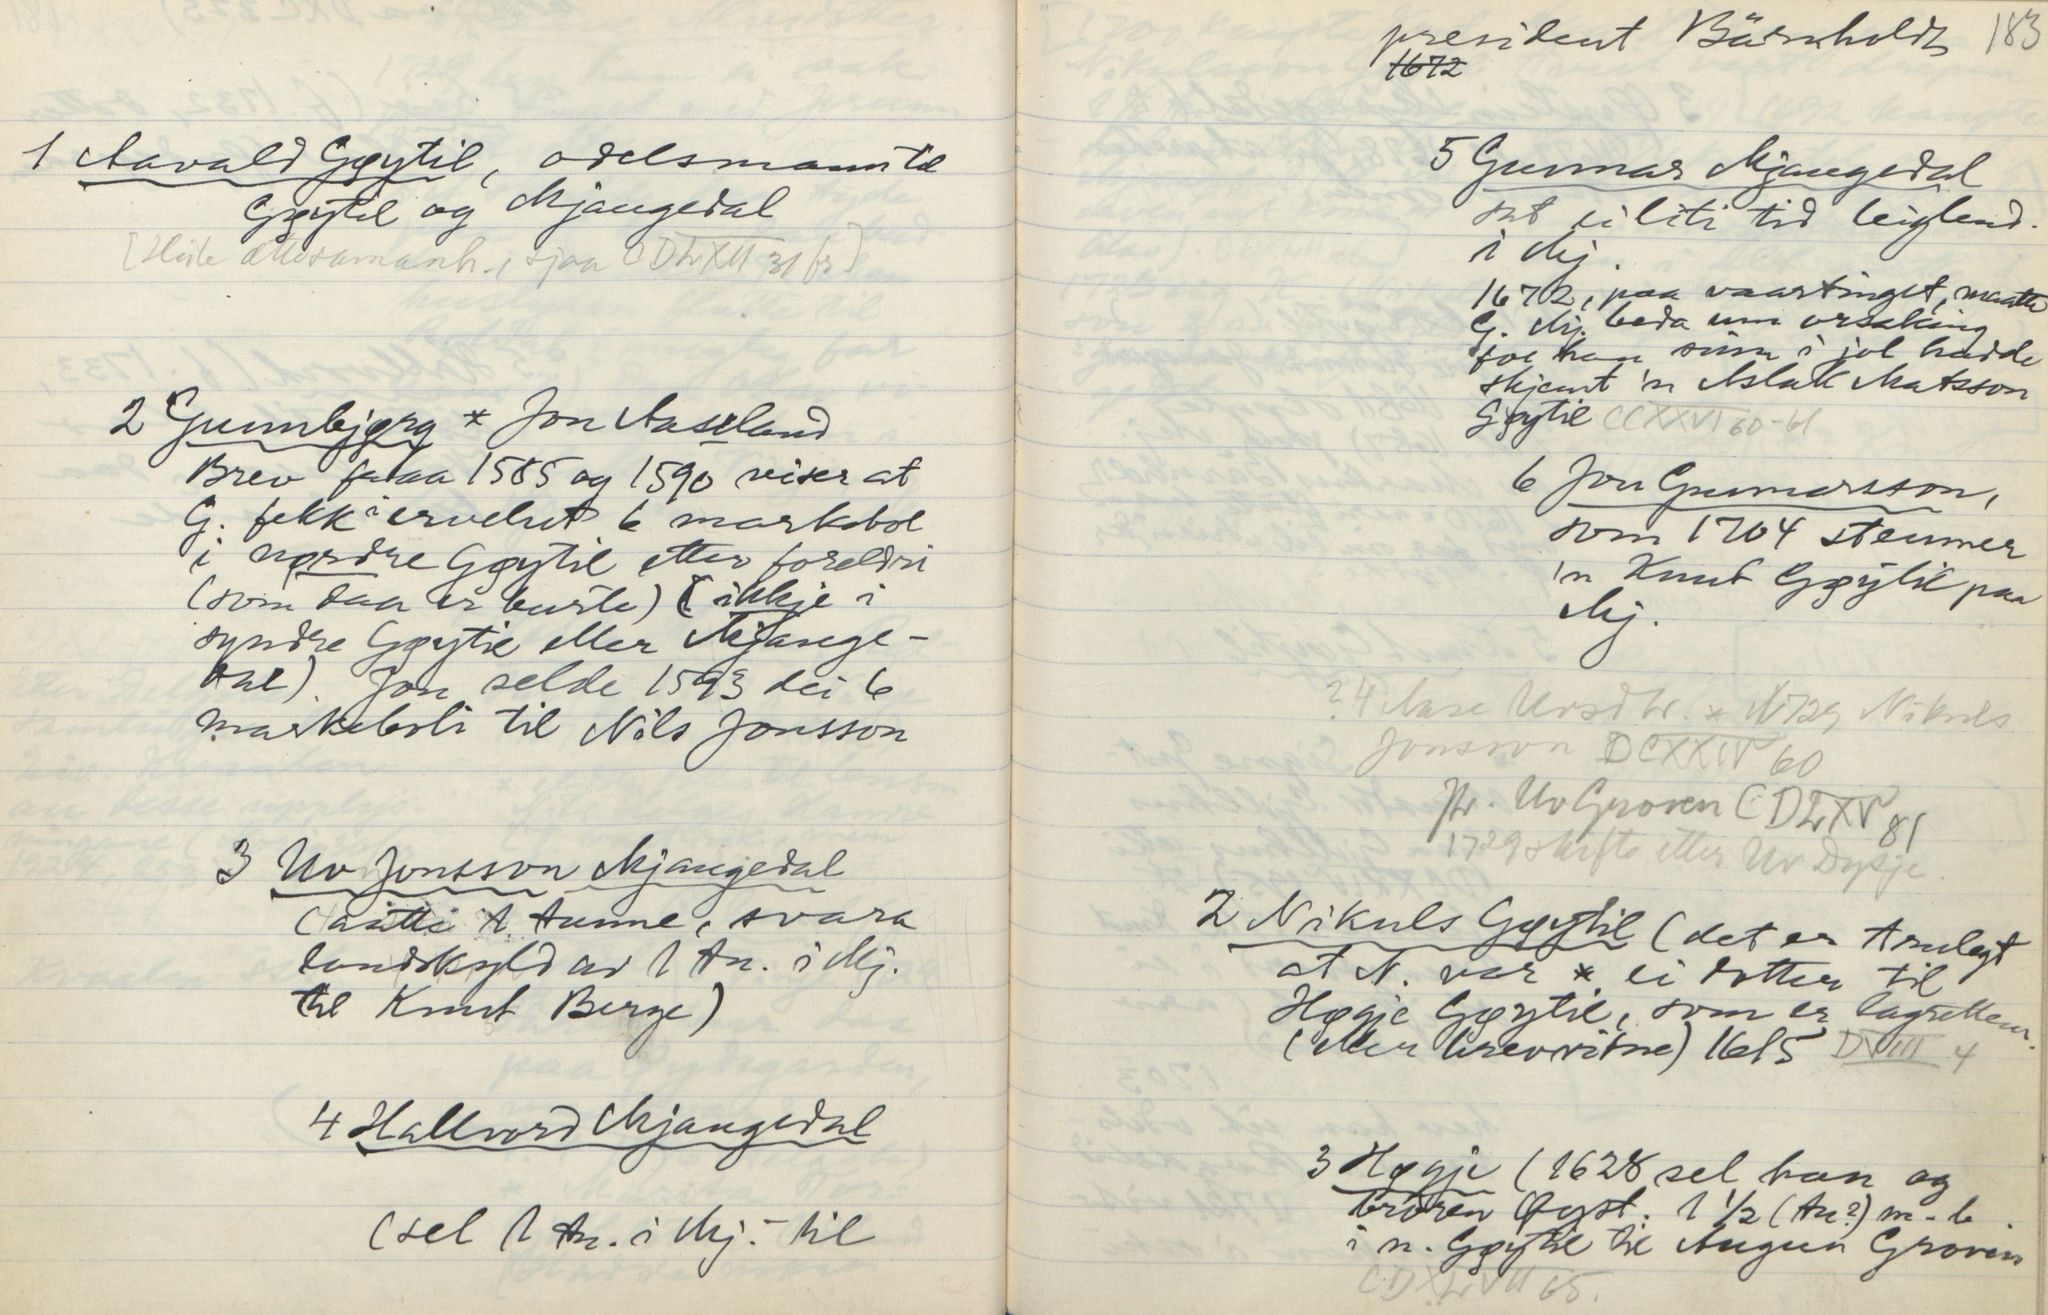 1 Aavald Gøytil, odelsmann til
Gøytil og Mjaugedal
[Heile ættesamanh., sjaa CDLXII 31 fr]
2 Gunnbjørg * Jon Aasland
Brev fraa 1585 og 1590 viser at
G. fekk i ervelut 6 markebol
i nørdre Gøytil etter foreldri
(som daa er burte) (ikkje i
syndre Gøytil eller Mjauge-
dal). Jon selde 1593 dei 6
markeboli til Nils Jonsson
3 Uv Jonsson Mjaugedal
(aatte 1 tunne, svara
landskyld av 1 tn. i Mj.
til Knut Berge)
4 Hallvord Mjaugedal
(sel 1 tn. i Mj. til
president Bärnholdt 183
1672
5 Gunnar Mjaugedal
sat ei liti tid leiglend.
i Mj.
1672, paa vaartinget, maatte
G. Mj. beda um orsaking
for han sum i jol hadde
skjemt 'n Aslak Matsson
Gøytil CCXXVI 60-61
6 Jon Gunnarsson,
som 1704 stemner
'n Knut Gøytil paa
Mj.
? 4 Aase Uvsdtr. * N 729 Nikuls
Jonsson DCXXIV 60
Jfr. Uv Groven CDLXV 81
1729 skifte etter Uv Dysje.
2 Nikuls Gøytil (det er trulegt
at N. var * ei dotter til
Høgje Gøytil, som er lagrettem.
(eller brevvitne) 1615 DVIII 4
3 Høgje (1628 sel han og
broren Øyst. 1 1/2 (tn?) m.b.
i n. Gøytil til Augun Groven
CDXLVII 65.